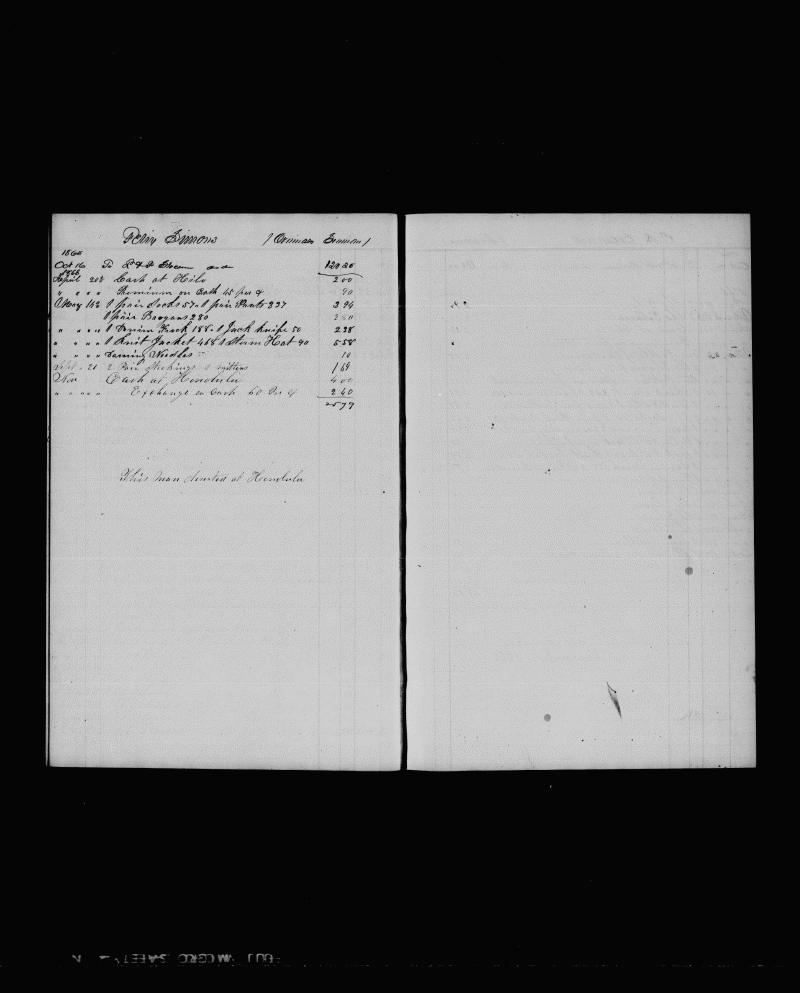 Simons
1865
Oct 16 To
1866
April 20 Cash at Hilo 2 00
" " " " Premium on Cash 45 per % 90
May 1 pair Socks 57 1 pair Pants 337 3 94
1 pair Brogans 280 2 80
" " " " 1 Denim Frock 188 1 Jack Knife 50 2 38
" " " " 1 Knit Jacket 468 1 Storm Hat 90 5 58
" " " " Darning Needles 10
Sept 2 Pair Stockings mittens 1 69
Nov Cash at Honolulu 4 00
" " " " Exchange on Cash 60 Per % 2 40
25 79
This man deserted at Honolulu